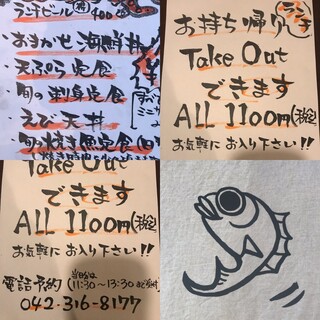 ランチビール(有)400
・おまかせ海鮮丼
・天ぷら定食
・旬の刺身定食
・えび天丼
・旬の焼き魚定食
お持ち帰り
ランチ
Take Out
できます
ALL 1100円(税込)
Take Out
できます
ALL 1100円(税込)
お気軽にお入り下さい!!
電話予約(当日分は11:30〜13:30まで受付)
042-316-8177